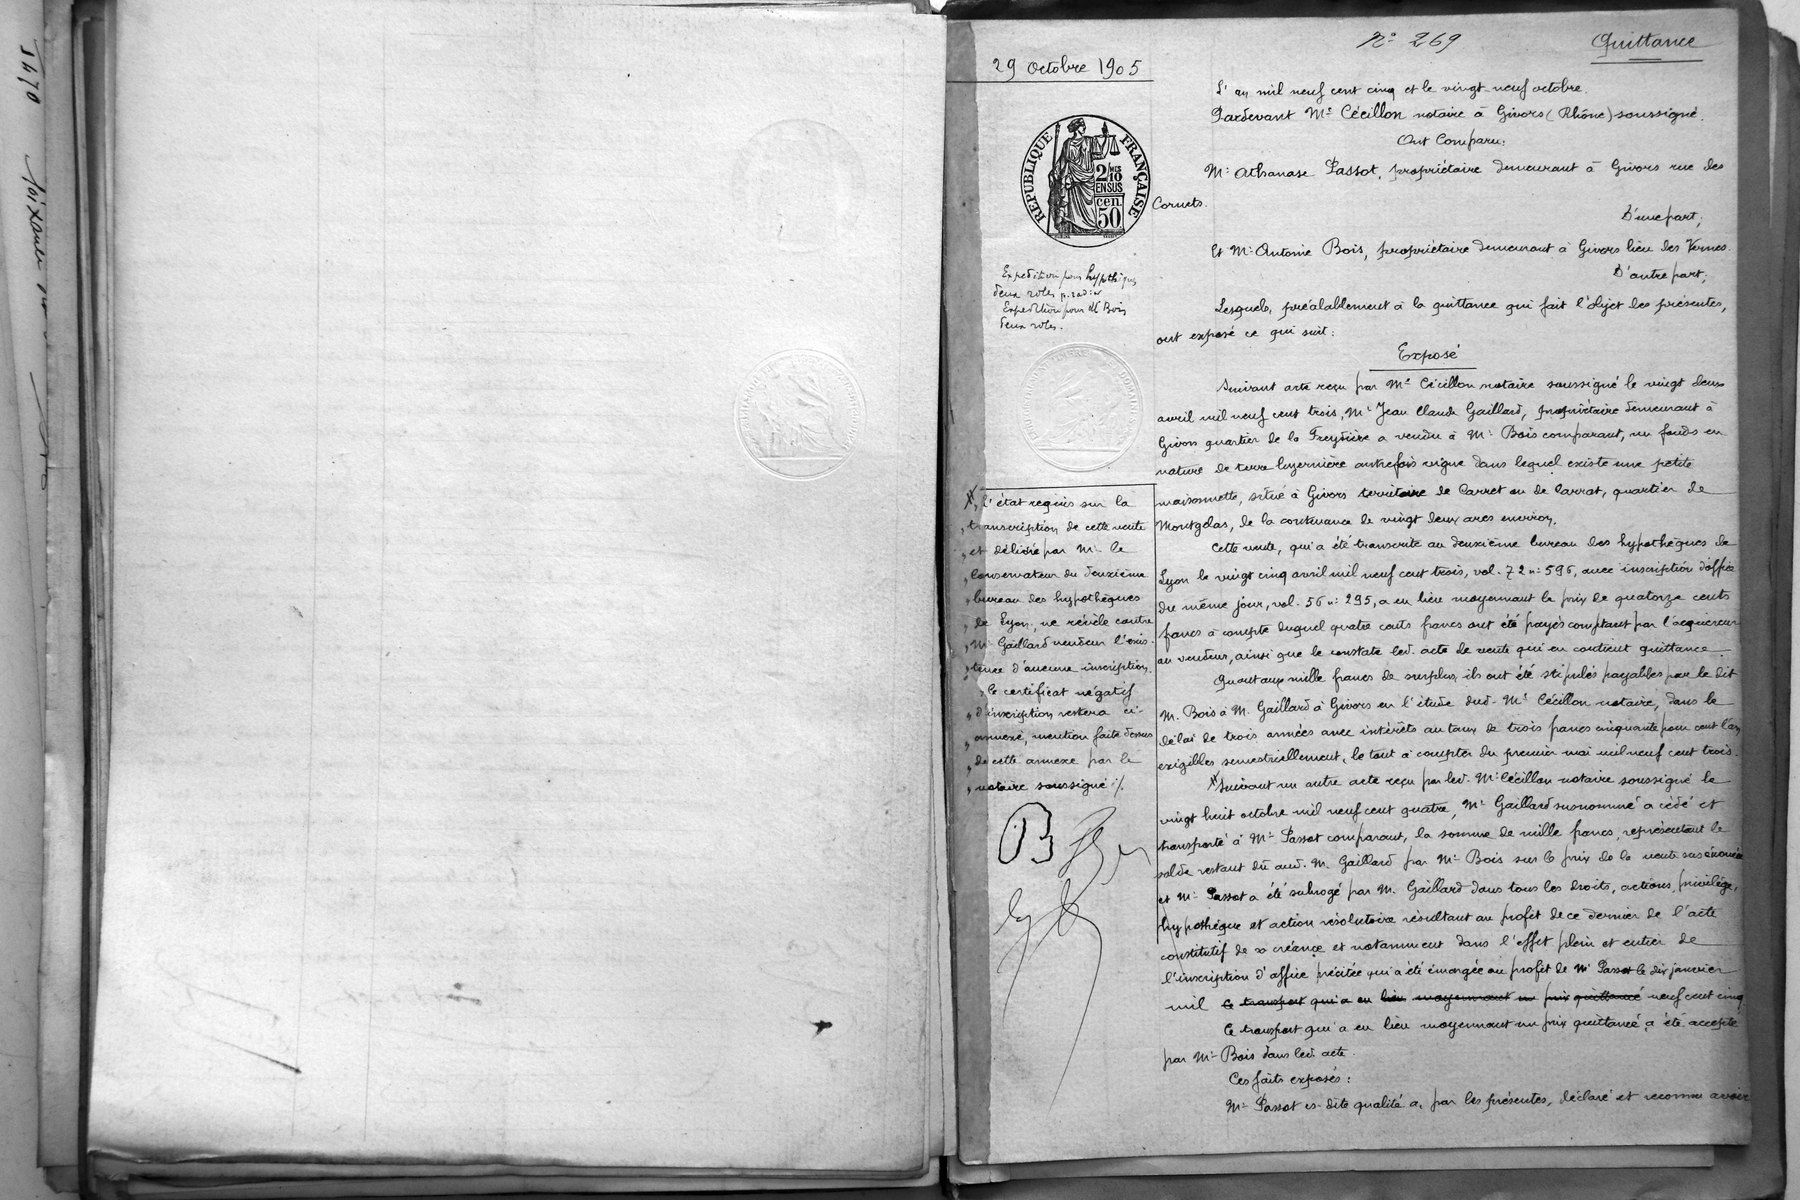 N° 269
Quittance
29 octobre 1905
RÉPUBLIQUE FRANÇAISE
2/10 EN SUS
cen. 50
Expédition pour hypothèques
deux roles p. radier
Expédition pour M Bois
deux roles.
L'an mil neuf cent cinq et le vingt neuf octobre.
Pardevant Me Cécillon notaire à Givors (Rhône) soussigné.
Ont Comparu:
Mr Athanase Passot, propriétaire demeurant à Givors rue des
Cornets.
D'une part;
Et Mr Antoine Bois, propriétaire demeurant à Givors lieu des Vernes.
D'autre part;
Lesquels, préalablement à la quittance qui fait l'objet des présentes,
ont exposé ce qui suit:
Exposé
Suivant acte reçu par Me Cécillon notaire soussigné le vingt deux
avril mil neuf cent trois, Mr Jean Claude Gaillard, propriétaire demeurant à
Givors quartier de la Freydière a vendu à Mr Bois comparant, un fonds en
nature de terre luzernière autrefois vigne dans lequel existe une petite
maisonnette, situé à Givors territoire de Carret ou de Carrat, quartier de
Montgelas, de la contenance de vingt deux ares environ.
Cette vente, qui a été transcrite au deuxième bureau des hypothèques de
Lyon le vingt cinq avril mil neuf cent trois, vol. 72 n° 596, avec inscription d'office
du même jour, vol. 56 n° 295, a eu lieu moyennant le prix de quatorze cents
francs à compte duquel quatre cents francs ont été payés comptant par l'acquéreur
au vendeur, ainsi que le constate led. acte de vente qui en contient quittance.
Quant aux mille francs de surplus, ils ont été stipulés payables par le dit
M. Bois à M. Gaillard à Givors en l'étude dud. Me Cécillon notaire, dans le
délai de trois années avec intérêts au taux de trois francs cinquante pour cent l'an
exigibles semestriellement, le tout à compter du premier mai mil neuf cent trois.
X Suivant un autre acte reçu par led. Me Cécillon notaire soussigné le
vingt huit octobre mil neuf cent quatre, Mr Gaillard susnommé a cédé et
transporté à Mr Passot comparant, la somme de mille francs, représentant le
solde restant dû aud. M. Gaillard par Mr Bois sur le prix de la vente sus énoncée
et Mr Passot a été subrogé par M. Gaillard dans tous les droits, actions, privilège,
hypothèque et action résolutoire résultant au profit de ce dernier de l'acte
constitutif de sa créance et notamment dans l'effet plein et entier de
l'inscription d'office précitée qui a été émargée au profit de Mr Passot le dix janvier
mil ce transport qui a eu lieu moyennant un prix quittancé neuf cent cinq
Ce transport qui a eu lieu moyennant un prix quittancé, a été accepté
par Mr Bois dans led. acte.
Ces faits exposés:
Mr Passot es-dite qualité a, par les présentes, déclaré et reconnu avoir
X, L'état requis sur la
transcription de cette vente
et délivré par Mr le
Conservateur du deuxième
bureau des hypothèques
de Lyon, ne révèle contre
Mr Gaillard vendeur l'exis-
tence d'aucune inscription.
Le certificat négatif
d'inscription restera ci-
annexé, mention faite dessus
de cette annexe par le
notaire soussigné ./.